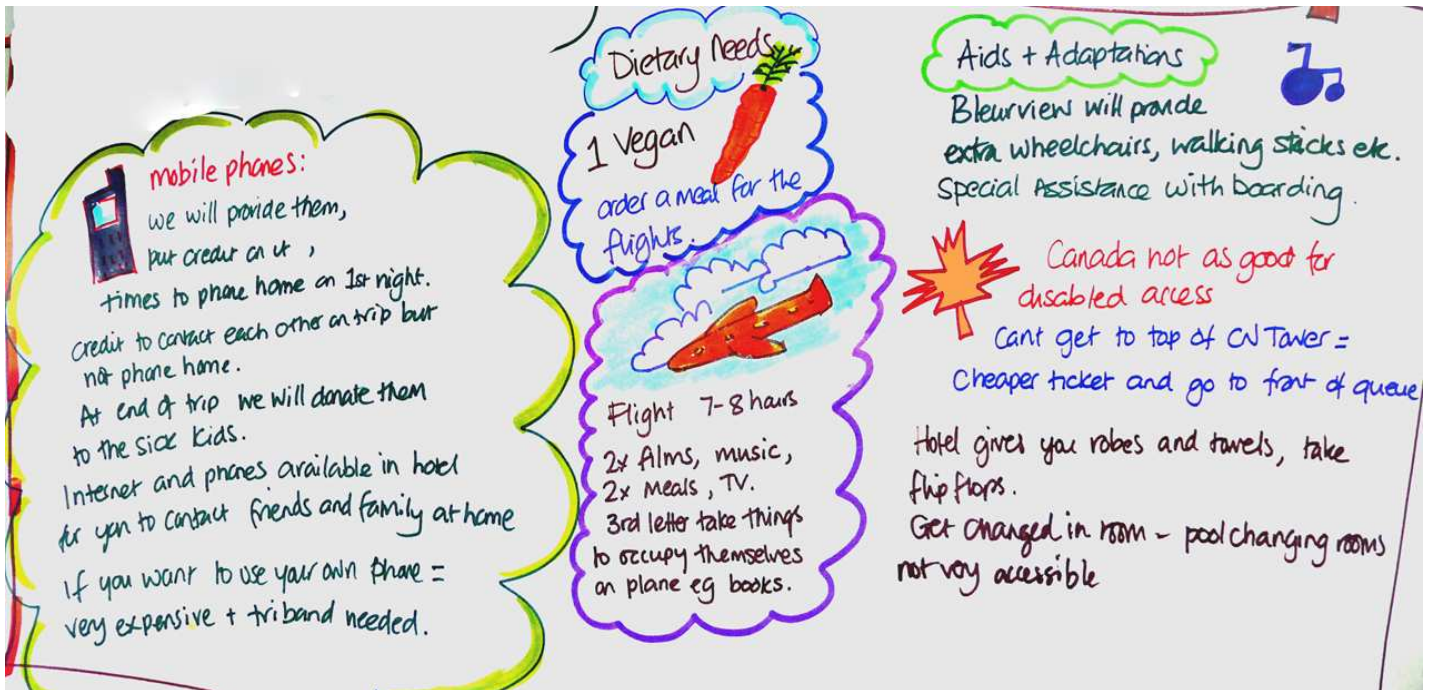 mobile phones:
we will provide them,
put credit on it,
times to phone home on 1st night.
credit to contact each other on trip but
not phone home.
At end of trip we will donate them
to the sick kids.
Internet and phones available in hotel
for you to contact friends and family at home
if you want to use your own phone =
very expensive + triband needed.
Dietary Needs
1 Vegan
order a meal for the
flights.
Flight 7-8 hours
2x films, music,
2x meals, TV.
3rd letter take things
to occupy themselves
on plane eg books.
Aids + Adaptations
Bleurview will provide
extra wheelchairs, walking sticks etc.
Special Assistance with boarding.
Canada not as good for
disabled access
Cant get to top of CN Tower =
Cheaper ticket and go to front of queue
Hotel gives you robes and towels, take
flip flops.
Get changed in room - pool changing rooms
not very accessible